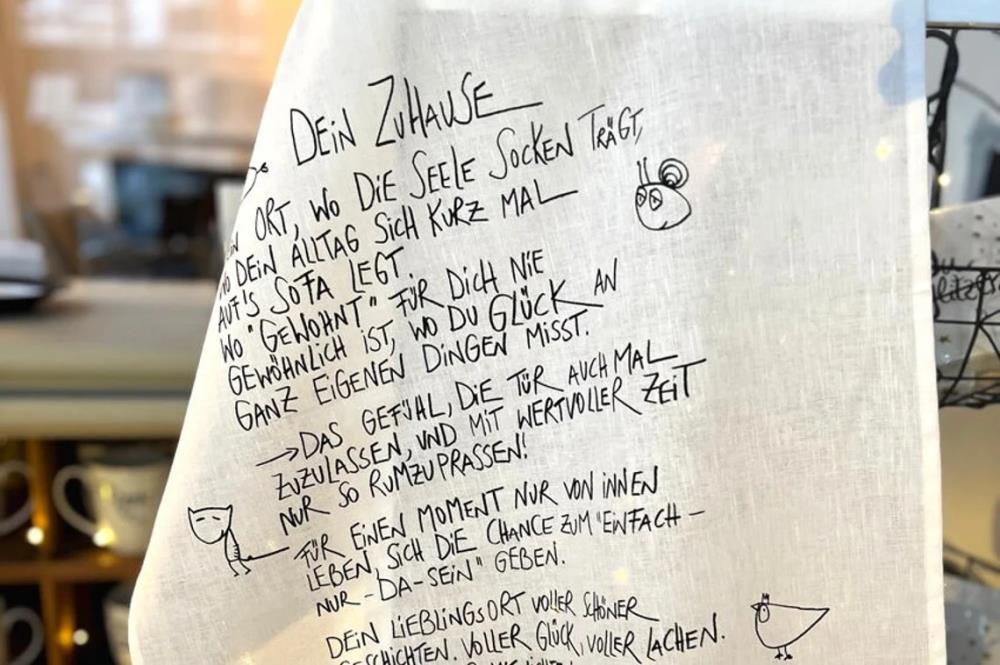 DEIN ZUHAUSE
ORT, WO DIE SEELE SOCKEN TRÄGT,
WO DEIN ALLTAG SICH KURZ MAL
AUF'S SOFA LEGT.
WO "GEWOHNT" FÜR DICH NIE
GEWÖHNLICH IST, WO DU GLÜCK AN
GANZ EIGENEN DINGEN MISST.
→DAS GEFÜHL, DIE TÜR AUCH MAL
ZUZULASSEN, UND MIT WERTVOLLER ZEIT
NUR SO RUMZUPRASSEN!
FÜR EINEN MOMENT NUR VON INNEN
LEBEN, SICH DIE CHANCE ZUM "EINFACH-
NUR-DA-SEIN" GEBEN.
DEIN LIEBLINGSORT VOLLER SCHÖNER
GESCHICHTEN. VOLLER GLÜCK, VOLLER LACHEN.